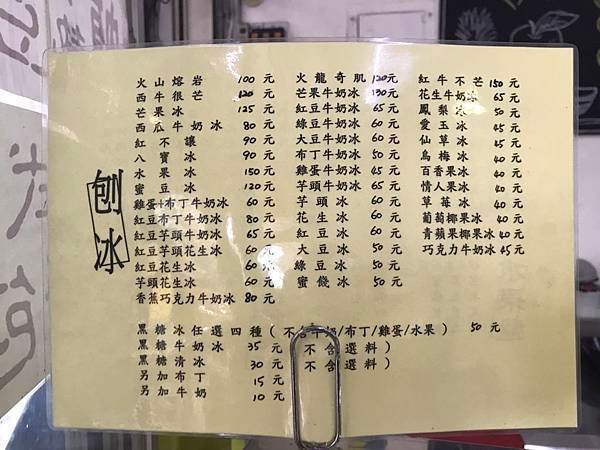 刨冰
火山熔岩 100元
西牛很芒 120元
芒果冰 125元
西瓜牛奶冰 80元
紅不讓 90元
八寶冰 90元
水果冰 150元
蜜豆冰 120元
雞蛋+布丁牛奶冰 60元
紅豆布丁牛奶冰 80元
紅豆芋頭牛奶冰 65元
紅豆芋頭花生冰 60元
紅豆花生冰 60元
芋頭花生冰 60元
香蕉巧克力牛奶冰 80元
火龍奇肌 120元
芒果牛奶冰 130元
紅豆牛奶冰 60元
綠豆牛奶冰 60元
大豆牛奶冰 60元
布丁牛奶冰 50元
雞蛋牛奶冰 45元
芋頭牛奶冰 65元
芋頭冰 60元
花生冰 60元
紅豆冰 60元
大豆冰 50元
綠豆冰 50元
蜜餞冰 50元
紅牛不芒 150元
花生牛奶冰 65元
鳳梨冰 50元
愛玉冰 45元
仙草冰 45元
烏梅冰 40元
百香果冰 40元
情人果冰 40元
草莓冰 40元
葡萄椰果冰 40元
青蘋果椰果冰 40元
巧克力牛奶冰 45元
黑糖冰任選四種(不含牛奶/布丁/雞蛋/水果) 50元
黑糖牛奶冰 35元(不含選料)
黑糖清冰 30元(不含選料)
另加布丁 15元
另加牛奶 10元